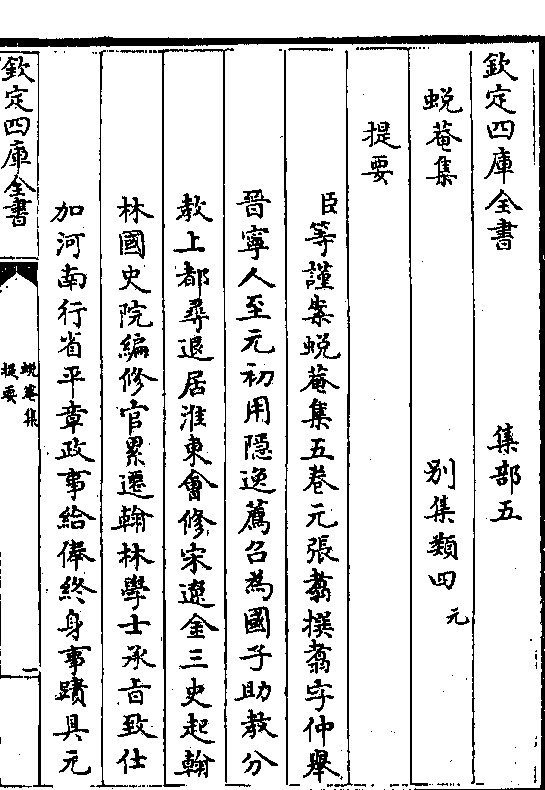 欽定四庫全書 集部五
蛻菴集 别集類四 元
提要
臣等謹案蛻菴集五巻元張翥撰翥字仲舉
晉寧人至元初用隠逸薦召為國子助教分
教上都尋退居淮東會修宋遼金三史起翰
林國史院編修官累遷翰林學士承㫖致仕
加河南行省平章政事給俸終身事蹟具元
欽定四庫全書
蛻菴集
提要
一